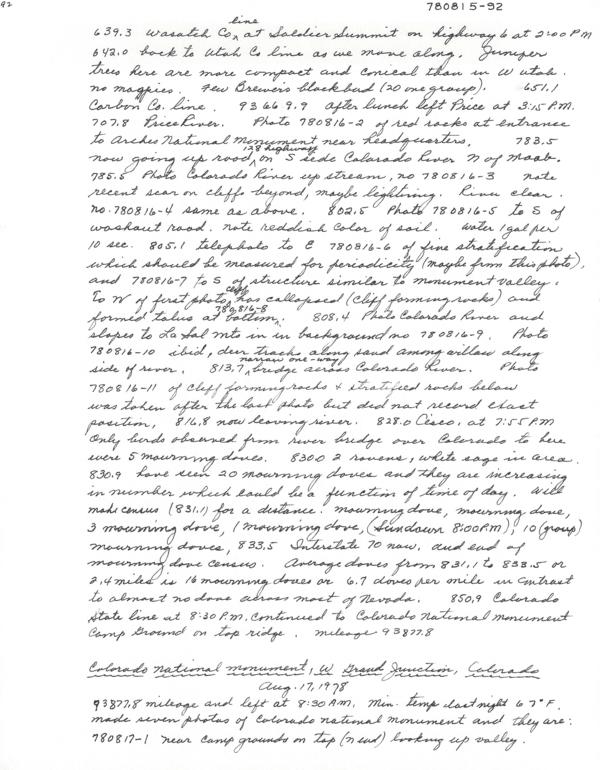 92
780815-92
639.3 Wasatch Co. line at Soldier Summit on highway 6 at 2:00 P.M
642.0 back to Utah Co line as we move along. Juniper
trees here are more compact and conical than in W Utah.
no magpies. Few Brewers blackbird (20 one group). 651.1
Carbon Co. line. 93669.9 after lunch left Price at 3:15 P.M.
707.8 Price River. Photo 780816-2 of red rocks at entrance
to Arches National Monument near headquarters. 783.5
now going up road, 128 highway on S side Colorado River N of Moab.
785.5 Photo Colorado River up stream, no 780816-3 note
recent scar on cliffs beyond, maybe lightning. River clear.
no. 780816-4 same as above. 802.5 Photo 780816-5 to S of
washout road. note reddish color of soil. Water 1 gal per
10 sec. 805.1 telephoto to E 780816-6 of fine stratification
which should be measured for periodicity (maybe from this photo),
and 780816-7 to S of structure similar to monument valley.
To W of first photo, cliff has callopsed (cliff forming rocks) and
formed talus at bottom 780816-8. 808.4 Photo Colorado River and
slopes to La Sal Mts in in background no 780816-9. Photo
780816-10 ibid, deer tracks along sand among willow along
side of river. 813.7, narrow one-way bridge across Colorado River. Photo
780816-11 of cliff forming rocks & stratified rocks below
was taken after the last photo but did not record exact
position, 816.8 now leaving river. 828.0 Cisco, at 7:55 P.M
Only birds observed from river bridge over Colorado to here
were 5 mourning doves. 830.0 2 ravens, white sage in area.
830.9 have seen 20 mourning doves and they are increasing
in number which could be a function of time of day. Will
make census (831.1) for a distance: mourning dove, mourning dove,
3 mourning dove, 1 mourning dove, (Sundown 8:00 P.M), 10 (group)
mourning doves, 833.5 Interstate 70 now, and end of
mourning dove census. Average doves from 831.1 to 833.5 or
2.4 miles is 16 mourning doves or 6.7 doves per mile in contrast
to almost no dove across most of Nevada. 850.9 Colorado
State line at 8:30 P.M. Continued to Colorado National Monument
Camp Ground on top ridge. mileage 93877.8
Colorado National Monument, W Grand Junction, Colorado
Aug. 17, 1978
93877.8 mileage and left at 8:30 AM. Min. temp last night 67°F.
made seven photos of Colorado national monument and they are:
780817-1 near camp grounds on top (N end) looking up valley.